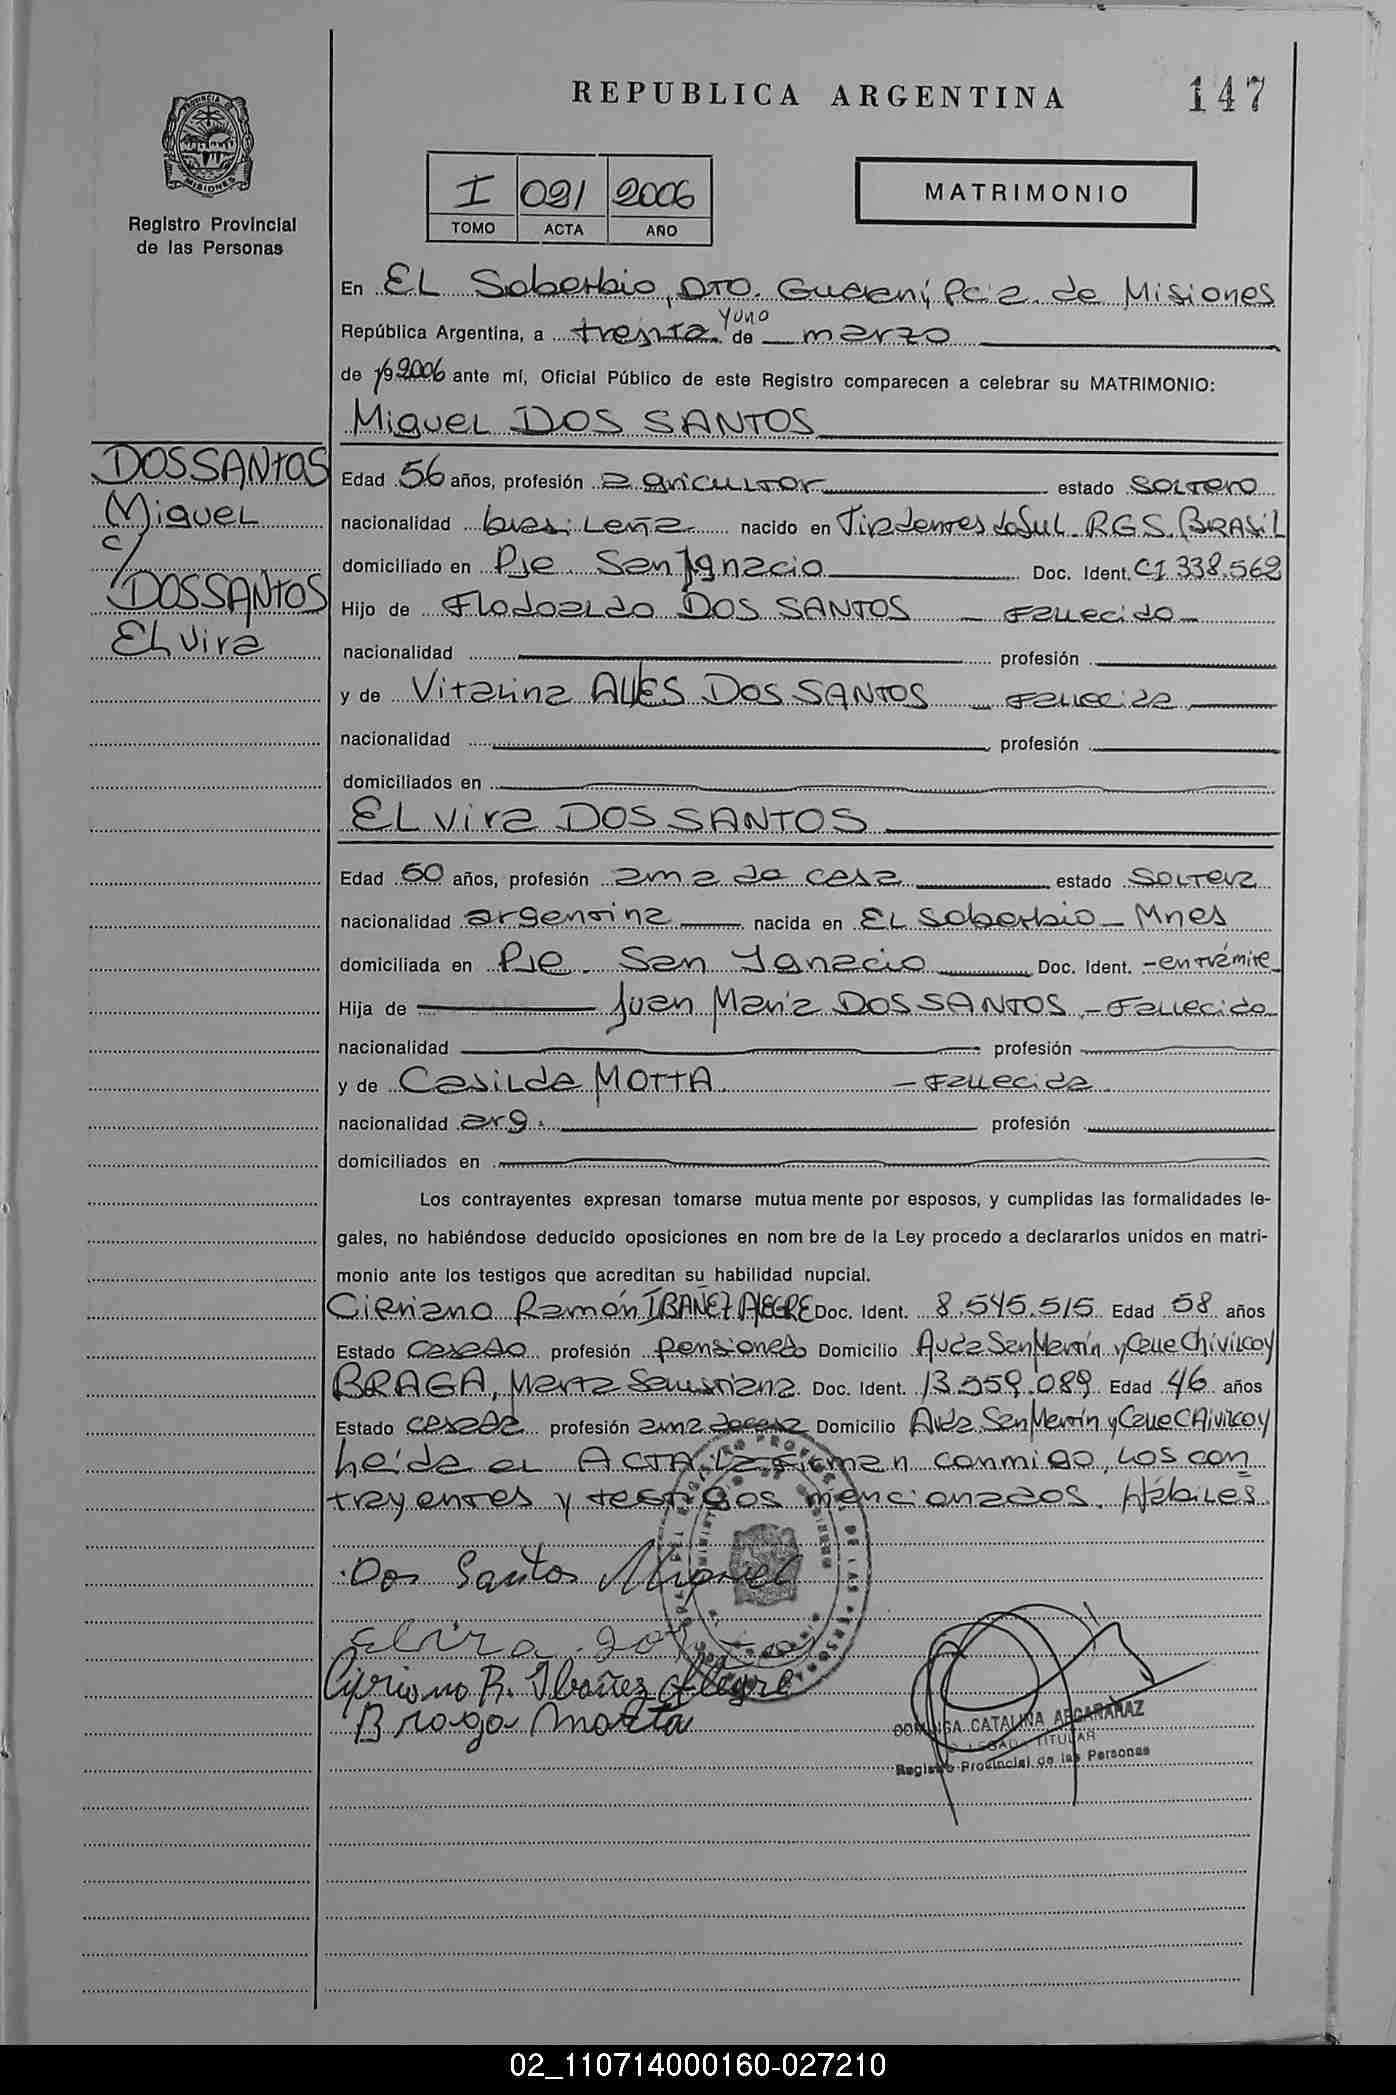 REPUBLICA ARGENTINA
147
PROVINCIA DE MISIONES
Registro Provincial
de las Personas
I 021 2006
TOMO ACTA AÑO
MATRIMONIO
En EL Soberbio, DTO. Guaraní, Pcia. de Misiones
República Argentina, a treinta y uno de marzo
de 19 2006 ante mí, Oficial Público de este Registro comparecen a celebrar su MATRIMONIO:
Miguel DOS SANTOS
DOS SANTOS
Miguel
c/
DOS SANTOS
Elvira
Edad 56 años, profesión agricultor estado soltero
nacionalidad brasileña nacido en Tiradentes do Sul. RGS. BRASIL
domiciliado en Pje San Ignacio Doc. Ident. CI 338.562
Hijo de Flodoaldo DOS SANTOS - Fallecido -
nacionalidad profesión
y de Vitalina ALVES DOS SANTOS - Fallecida
nacionalidad profesión
domiciliados en
ELvira DOS SANTOS
Edad 50 años, profesión ama de casa estado soltera
nacionalidad argentina nacida en EL Soberbio - Mnes
domiciliada en Pje. San Ignacio Doc. Ident. - en trámite
Hija de Juan María DOS SANTOS - Fallecido
nacionalidad profesión
y de Casilda MOTTA - Fallecida
nacionalidad arg. profesión
domiciliados en
Los contrayentes expresan tomarse mutua mente por esposos, y cumplidas las formalidades le-
gales, no habiéndose deducido oposiciones en nom bre de la Ley procedo a declararlos unidos en matri-
monio ante los testigos que acreditan su habilidad nupcial.
Cipriano Ramón IBAÑEZ ALEGRE Doc. Ident. 8.545.515 Edad 58 años
Estado casado profesión pensionado Domicilio Avda San Martín y Calle Chivilcoy
BRAGA, Marta Sebastiana Doc. Ident. 13.559.089 Edad 46 años
Estado casada profesión ama de casa Domicilio Avda. San Martín y Calle Chivilcoy
Leída el ACTA, la firman conmigo, los con
trayentes y testigos mencionados. Hábiles.
Dos Santos Miguel
Elvira
Cipriano R. Ibañez Alegre
Braga Marta
CATALINA
TITULAR
Registro Provincial de las Personas
02_110714000160-027210